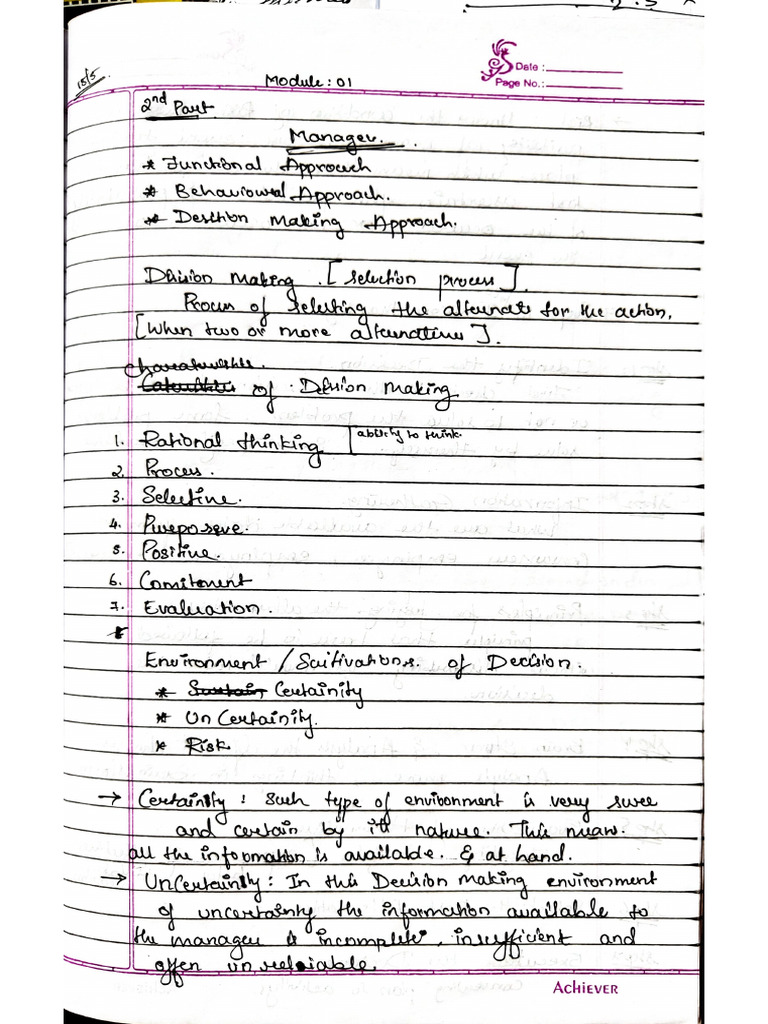 15/5
Module : 01
Date :
Page No.:
2nd Part
Manager.
* Functional Approach
* Behavioural Approach.
* Desition Making Approach.
Dicision Making . [selection process].
Process of selecting the alternate for the action,
[When two or more alternatives].
characteristic.
of Decision Making
1. Rational thinking [ability to think.
2. Process.
3. Selective.
4. Pureposeve.
5. Positive.
6. Comitment
7. Evaluation.
*
Environment / Saitivations. of Decision.
* Certainity
* Un Certainity.
* Risk
→ Certainity : Such type of environment is very sure
and certain by its nature. This mean.
all the information is available. & at hand.
→ UnCertainity : In this Decision making environment
of uncertainty the information available to
the manager is incomplete, insufficient and
often un reliable.
Achiever